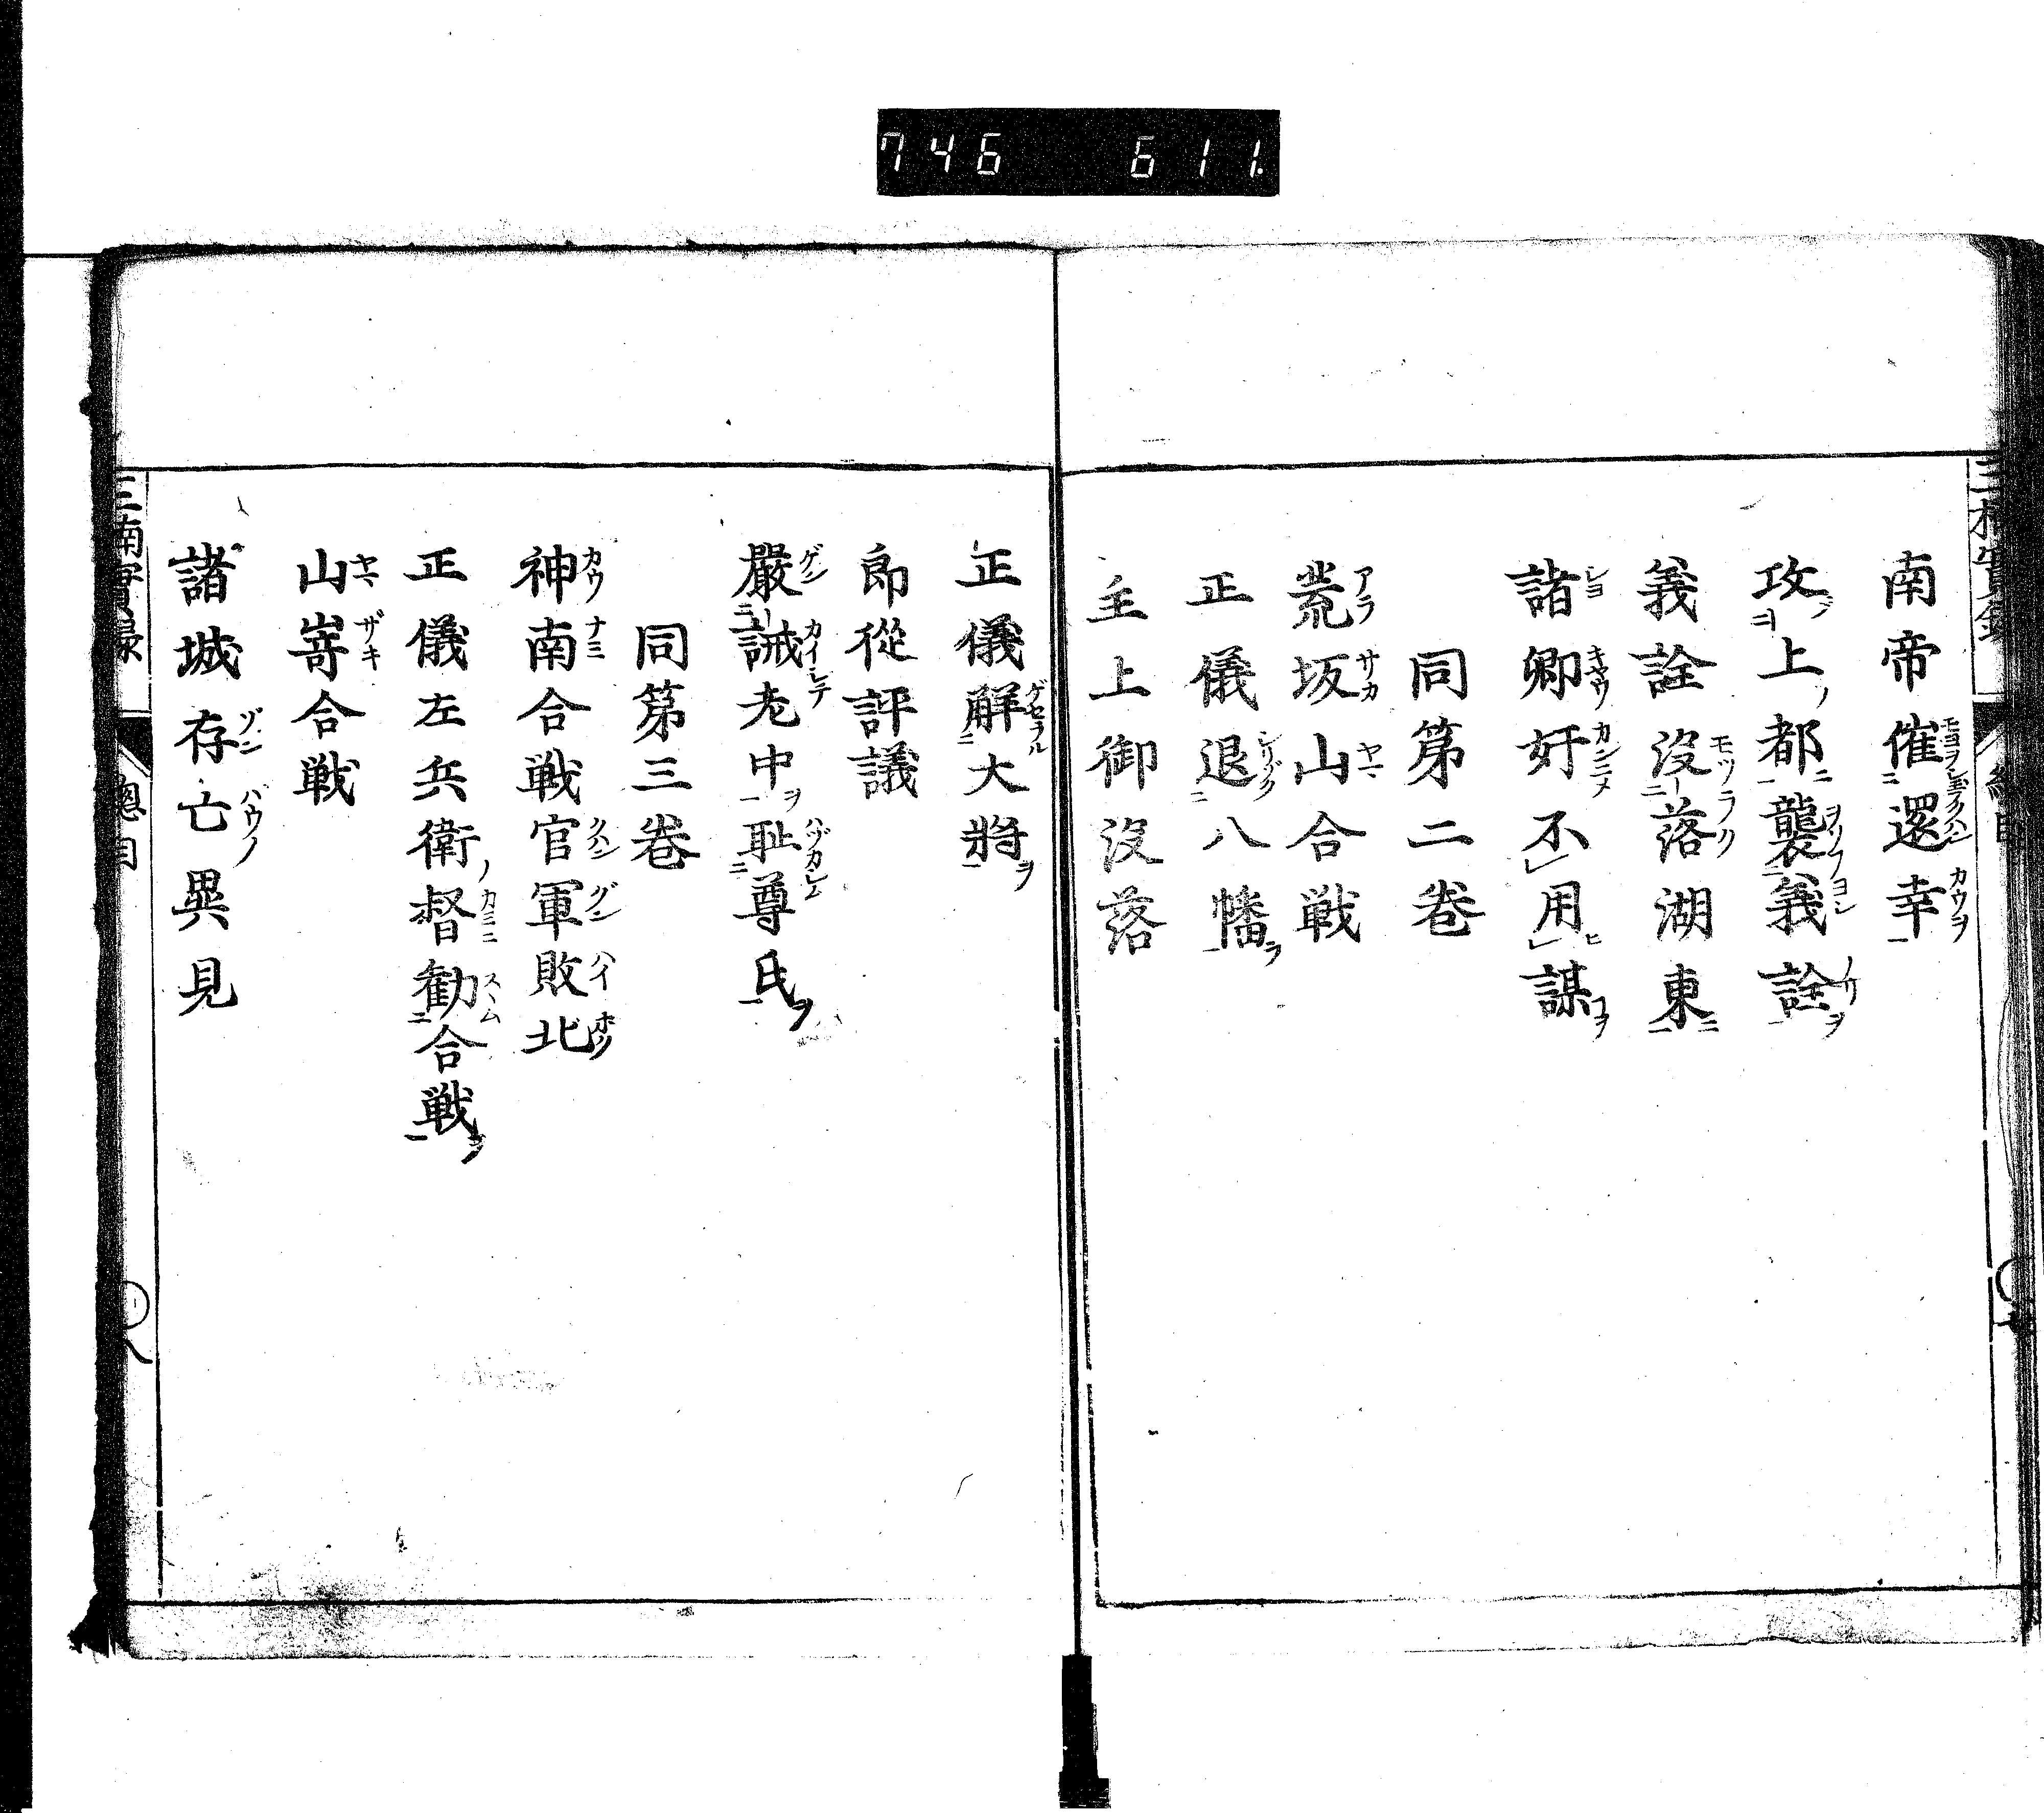 746 611
南帝催還幸
攻上都襲義詮
義詮没落湖東
諸卿奸不用謀
同第二巻
荒坂山合戦
正儀退八幡
主上御没落
正儀解大将
郎從評議
嚴誡老中恥尊氏
同第三巻
神南合戦官軍敗北
正儀左兵衛督勧合戦
山嵜合戦
諸城存亡異見
三楠實録 總目 八